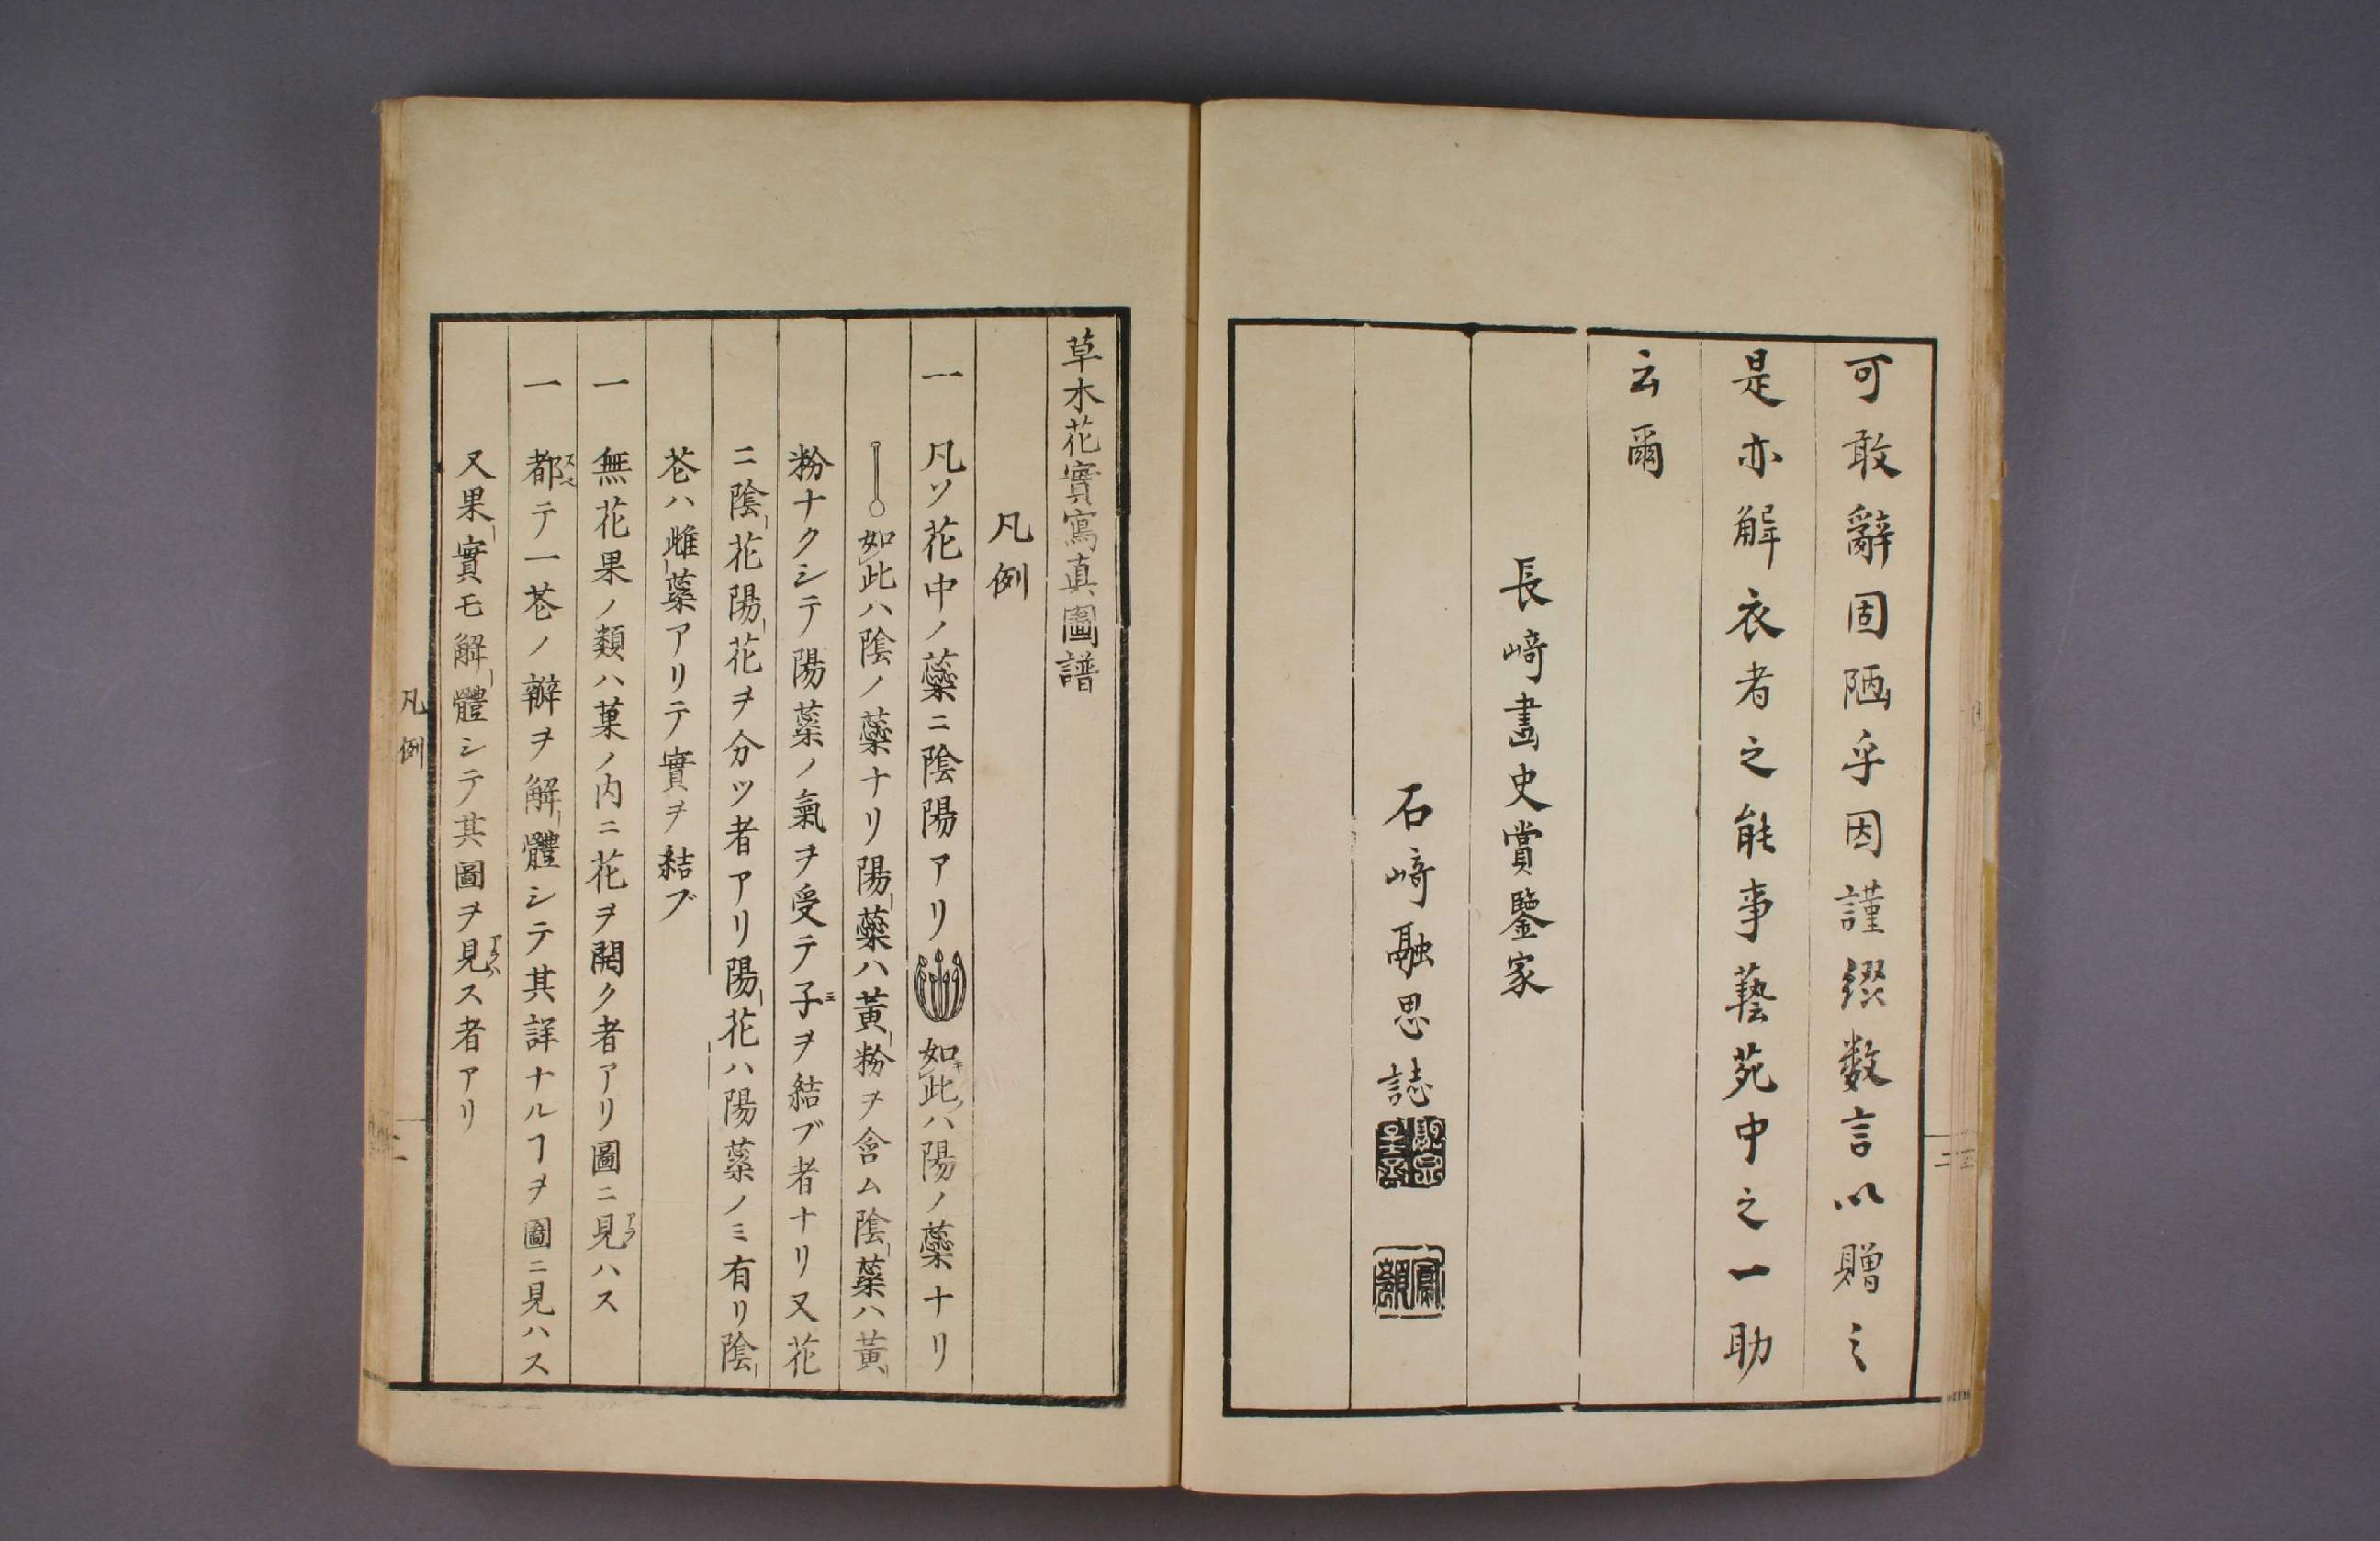 可敢辭固陋乎因謹綴数言以贈之
是亦解衣者之能事藝苑中之一助
云爾
長﨑畫史賞鑒家
石﨑融思誌
草木花實寫真圖譜
凡例
一 凡ソ花中ノ蘂ニ陰陽アリ如此ハ陽ノ蘂ナリ
如此ハ陰ノ蘂ナリ陽蘂ハ黃粉ヲ含ム陰蘂ハ黃
粉ナクシテ陽蘂ノ氣ヲ受テ子ヲ結ブ者ナリ又花
ニ陰花陽花ヲ分ツ者アリ陽花ハ陽蘂ノミ有リ陰
花ハ雌蘂アリテ實ヲ結ブ
一 無花果ノ類ハ菓ノ内ニ花ヲ開ク者アリ圖ニ見ハス
一 都テ一花ノ瓣ヲ解體シテ其詳ナルヿヲ圖ニ見ハス
又果實モ解體シテ其圖ヲ見ス者アリ
凡例